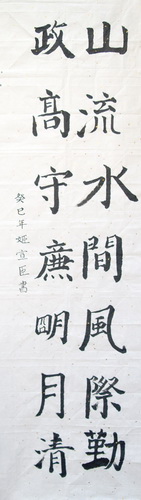 山流水間風際勤
政高守廉明月清
癸巳年姬宣臣書